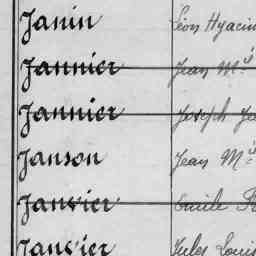 Janin Léon Hyacin
Jannier Jean M.s
Jannier Joseph
Janson Jean M.s
Janvier Emile
Janvier Jules Louis